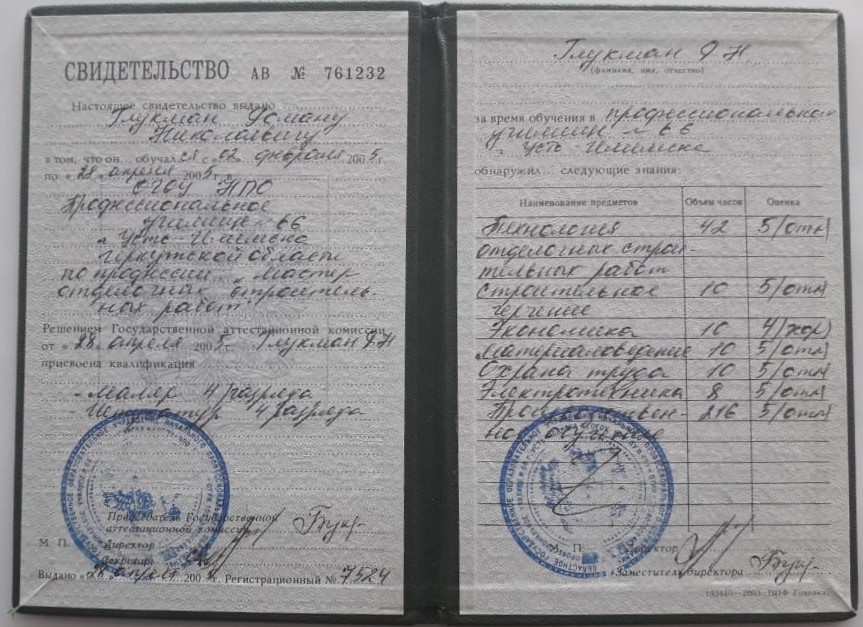 СВИДЕТЕЛЬСТВО АВ № 761232
Настоящее свидетельство выдано
Глукман
Николаевичу
в том, что он обучался с «02» февраля 2005 г.
по «28» апреля 2005 г. в
ОГОУ НПО
Профессиональное
училище 66
г. Усть-Илимска
Иркутской области
по профессии „Мастер
отделочных строитель-
ных работ"
Решением Государственной аттестационной комиссии
от «28» апреля 2005 г. Глукман
присвоена квалификация
- Маляр 4 разряда
- Штукатур 4 разряда
Председатель Государственной
аттестационной комиссии
М. П. Директор
Секретарь
Выдано «28» апреля 200 г. Регистрационный № 7524
Глукман
(фамилия, имя, отчество)
за время обучения в профессиональном
училище 66
г. Усть-Илимска
обнаружил следующие знания:
Наименование предметов Объем часов Оценка
Технология 42 5/отл/
отделочных строи-
тельных работ
Строительное 10 5/отл/
черчение
Экономика 10 4/хор/
Материаловедение 10 5/отл/
Охрана труда 10 5/отл/
Электротехника 8 5/отл/
Производствен- 216 5/отл/
ное обучение
М. П. Директор
Заместитель директора